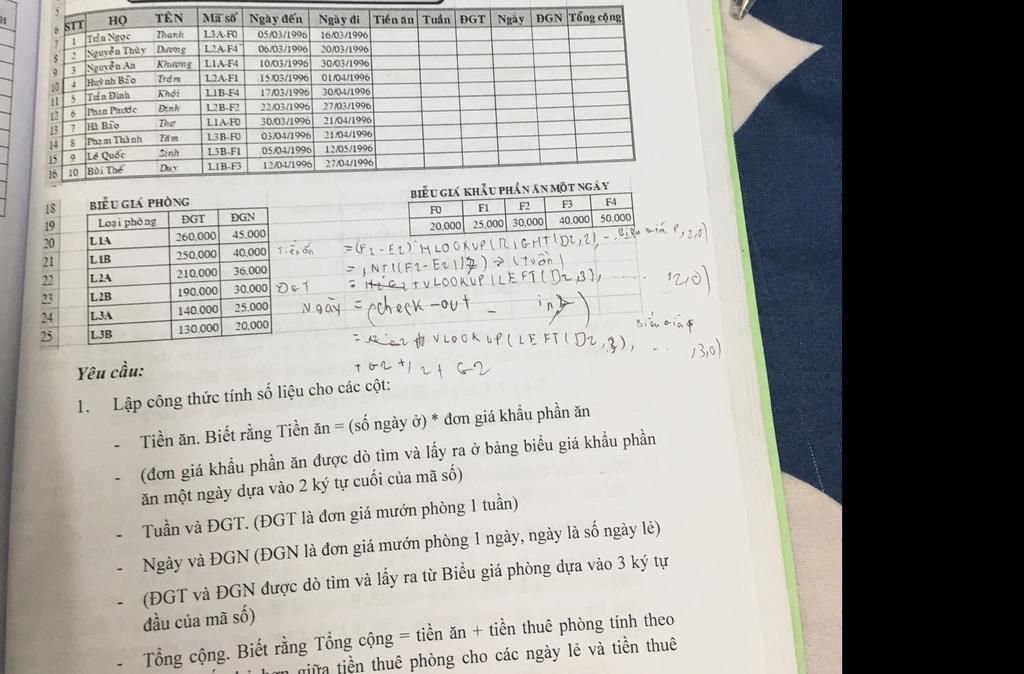 5
6 STT HỌ TÊN Mã số Ngày đến Ngày đi Tiền ăn Tuần ĐGT Ngày ĐGN Tổng cộng
7 1 Trần Ngọc Thanh L3A-F0 05/03/1996 16/03/1996
8 2 Nguyễn Thùy Dương L2A-F4 06/03/1996 20/03/1996
9 3 Nguyễn An Khương L1A-F4 10/03/1996 30/03/1996
10 4 Huỳnh Bảo Trâm L2A-F1 15/03/1996 01/04/1996
11 5 Trần Đình Khôi L1B-F4 17/03/1996 30/04/1996
12 6 Phan Phước Định L2B-F2 22/03/1996 27/03/1996
13 7 Hà Bảo Thơ L1A-F0 30/03/1996 21/04/1996
14 8 Phạm Thành Tâm L3B-F0 03/04/1996 21/04/1996
15 9 Lê Quốc Sinh L3B-F1 05/04/1996 12/05/1996
16 10 Bùi Thế Duy L1B-F3 12/04/1996 27/04/1996
BIỂU GIÁ KHẨU PHẦN ĂN MỘT NGÀY
F0 F1 F2 F3 F4
20.000 25.000 30.000 40.000 50.000
18 BIỂU GIÁ PHÒNG
19 Loại phòng ĐGT ĐGN
20 L1A 260.000 45.000
21 L1B 250.000 40.000
22 L2A 210.000 36.000
23 L2B 190.000 30.000
24 L3A 140.000 25.000
25 L3B 130.000 20.000
Tiền ăn =(F2-E2)*HLOOKUP(RIGHT(D2,2),
=INT((F2-E2)/7) → (tuần)
ĐGT VLOOKUP(LEFT(D2,3),
Ngày = (check-out - in)
VLOOKUP(LEFT(D2,3), ,3,0)
Yêu cầu:
1. Lập công thức tính số liệu cho các cột:
- Tiền ăn. Biết rằng Tiền ăn = (số ngày ở) * đơn giá khẩu phần ăn
- (đơn giá khẩu phần ăn được dò tìm và lấy ra ở bảng biểu giá khẩu phần
ăn một ngày dựa vào 2 ký tự cuối của mã số)
- Tuần và ĐGT. (ĐGT là đơn giá mướn phòng 1 tuần)
- Ngày và ĐGN (ĐGN là đơn giá mướn phòng 1 ngày, ngày là số ngày lẻ)
- (ĐGT và ĐGN được dò tìm và lấy ra từ Biểu giá phòng dựa vào 3 ký tự
đầu của mã số)
- Tổng cộng. Biết rằng Tổng cộng = tiền ăn + tiền thuê phòng tính theo
giữa tiền thuê phòng cho các ngày lẻ và tiền thuê